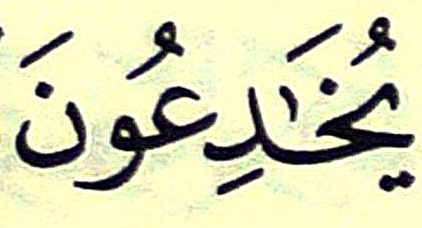 يُخَـٰدِعُونَ